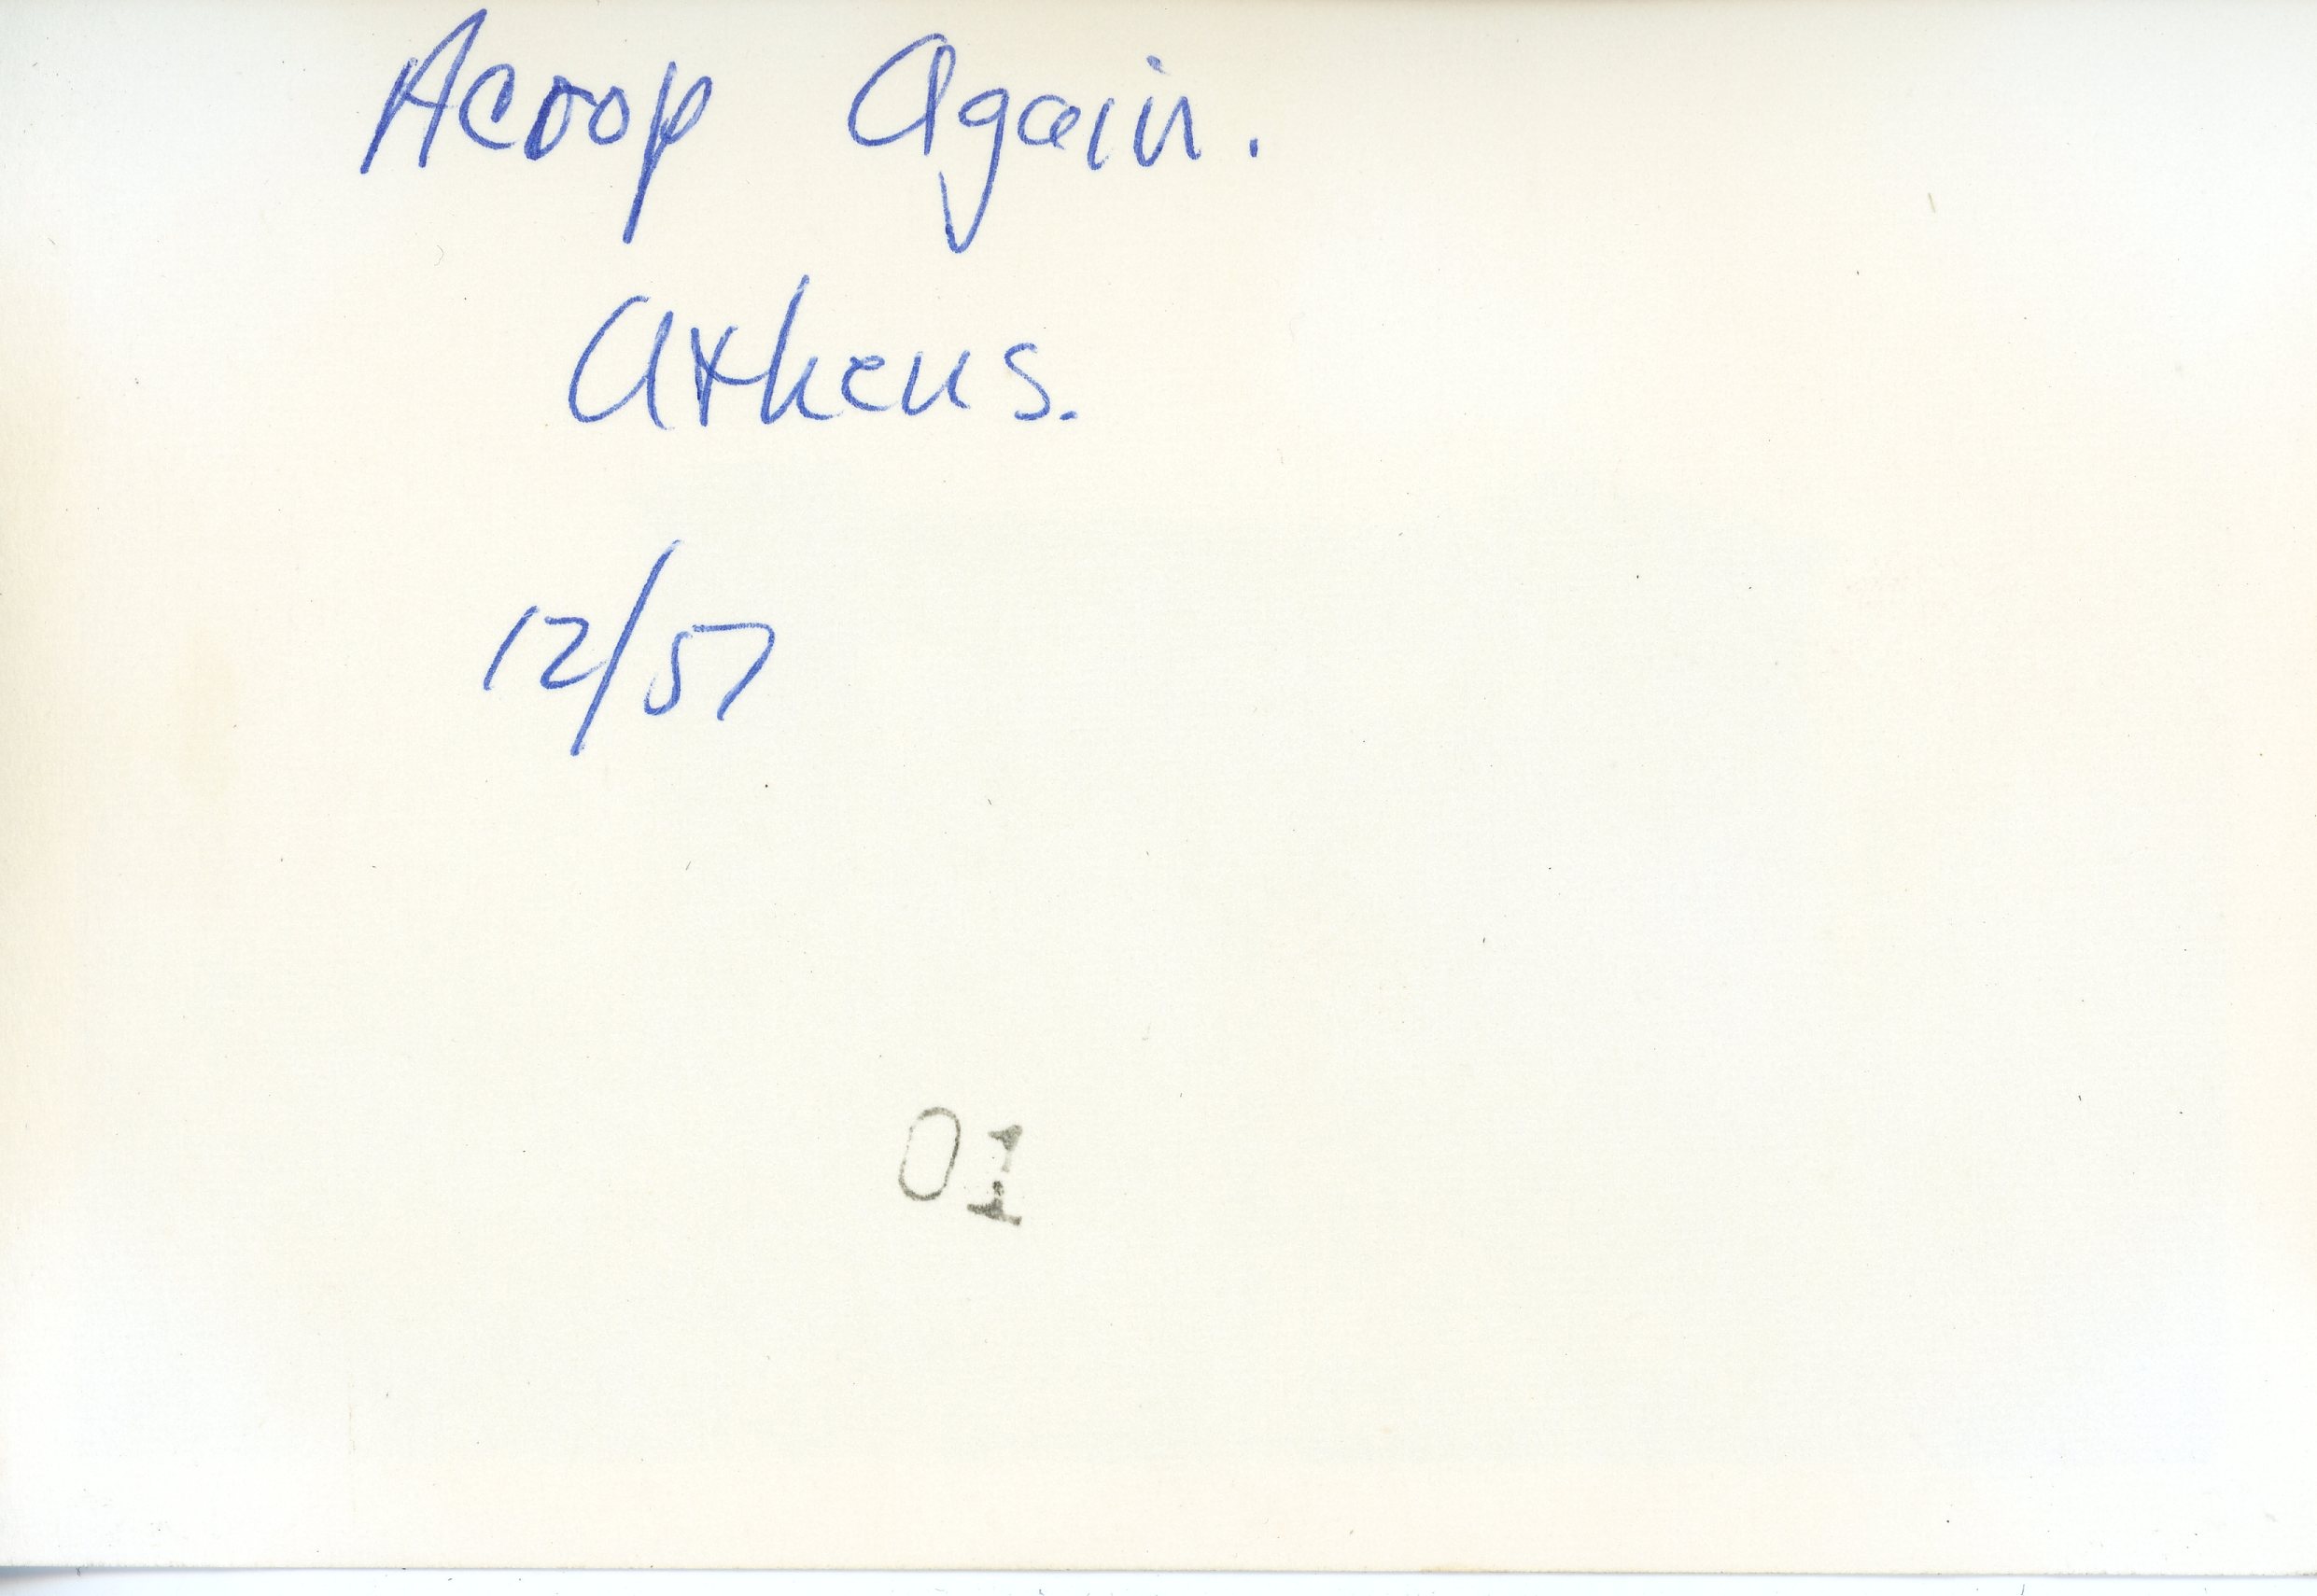 Acrop Again.
Athens.
12/57
01